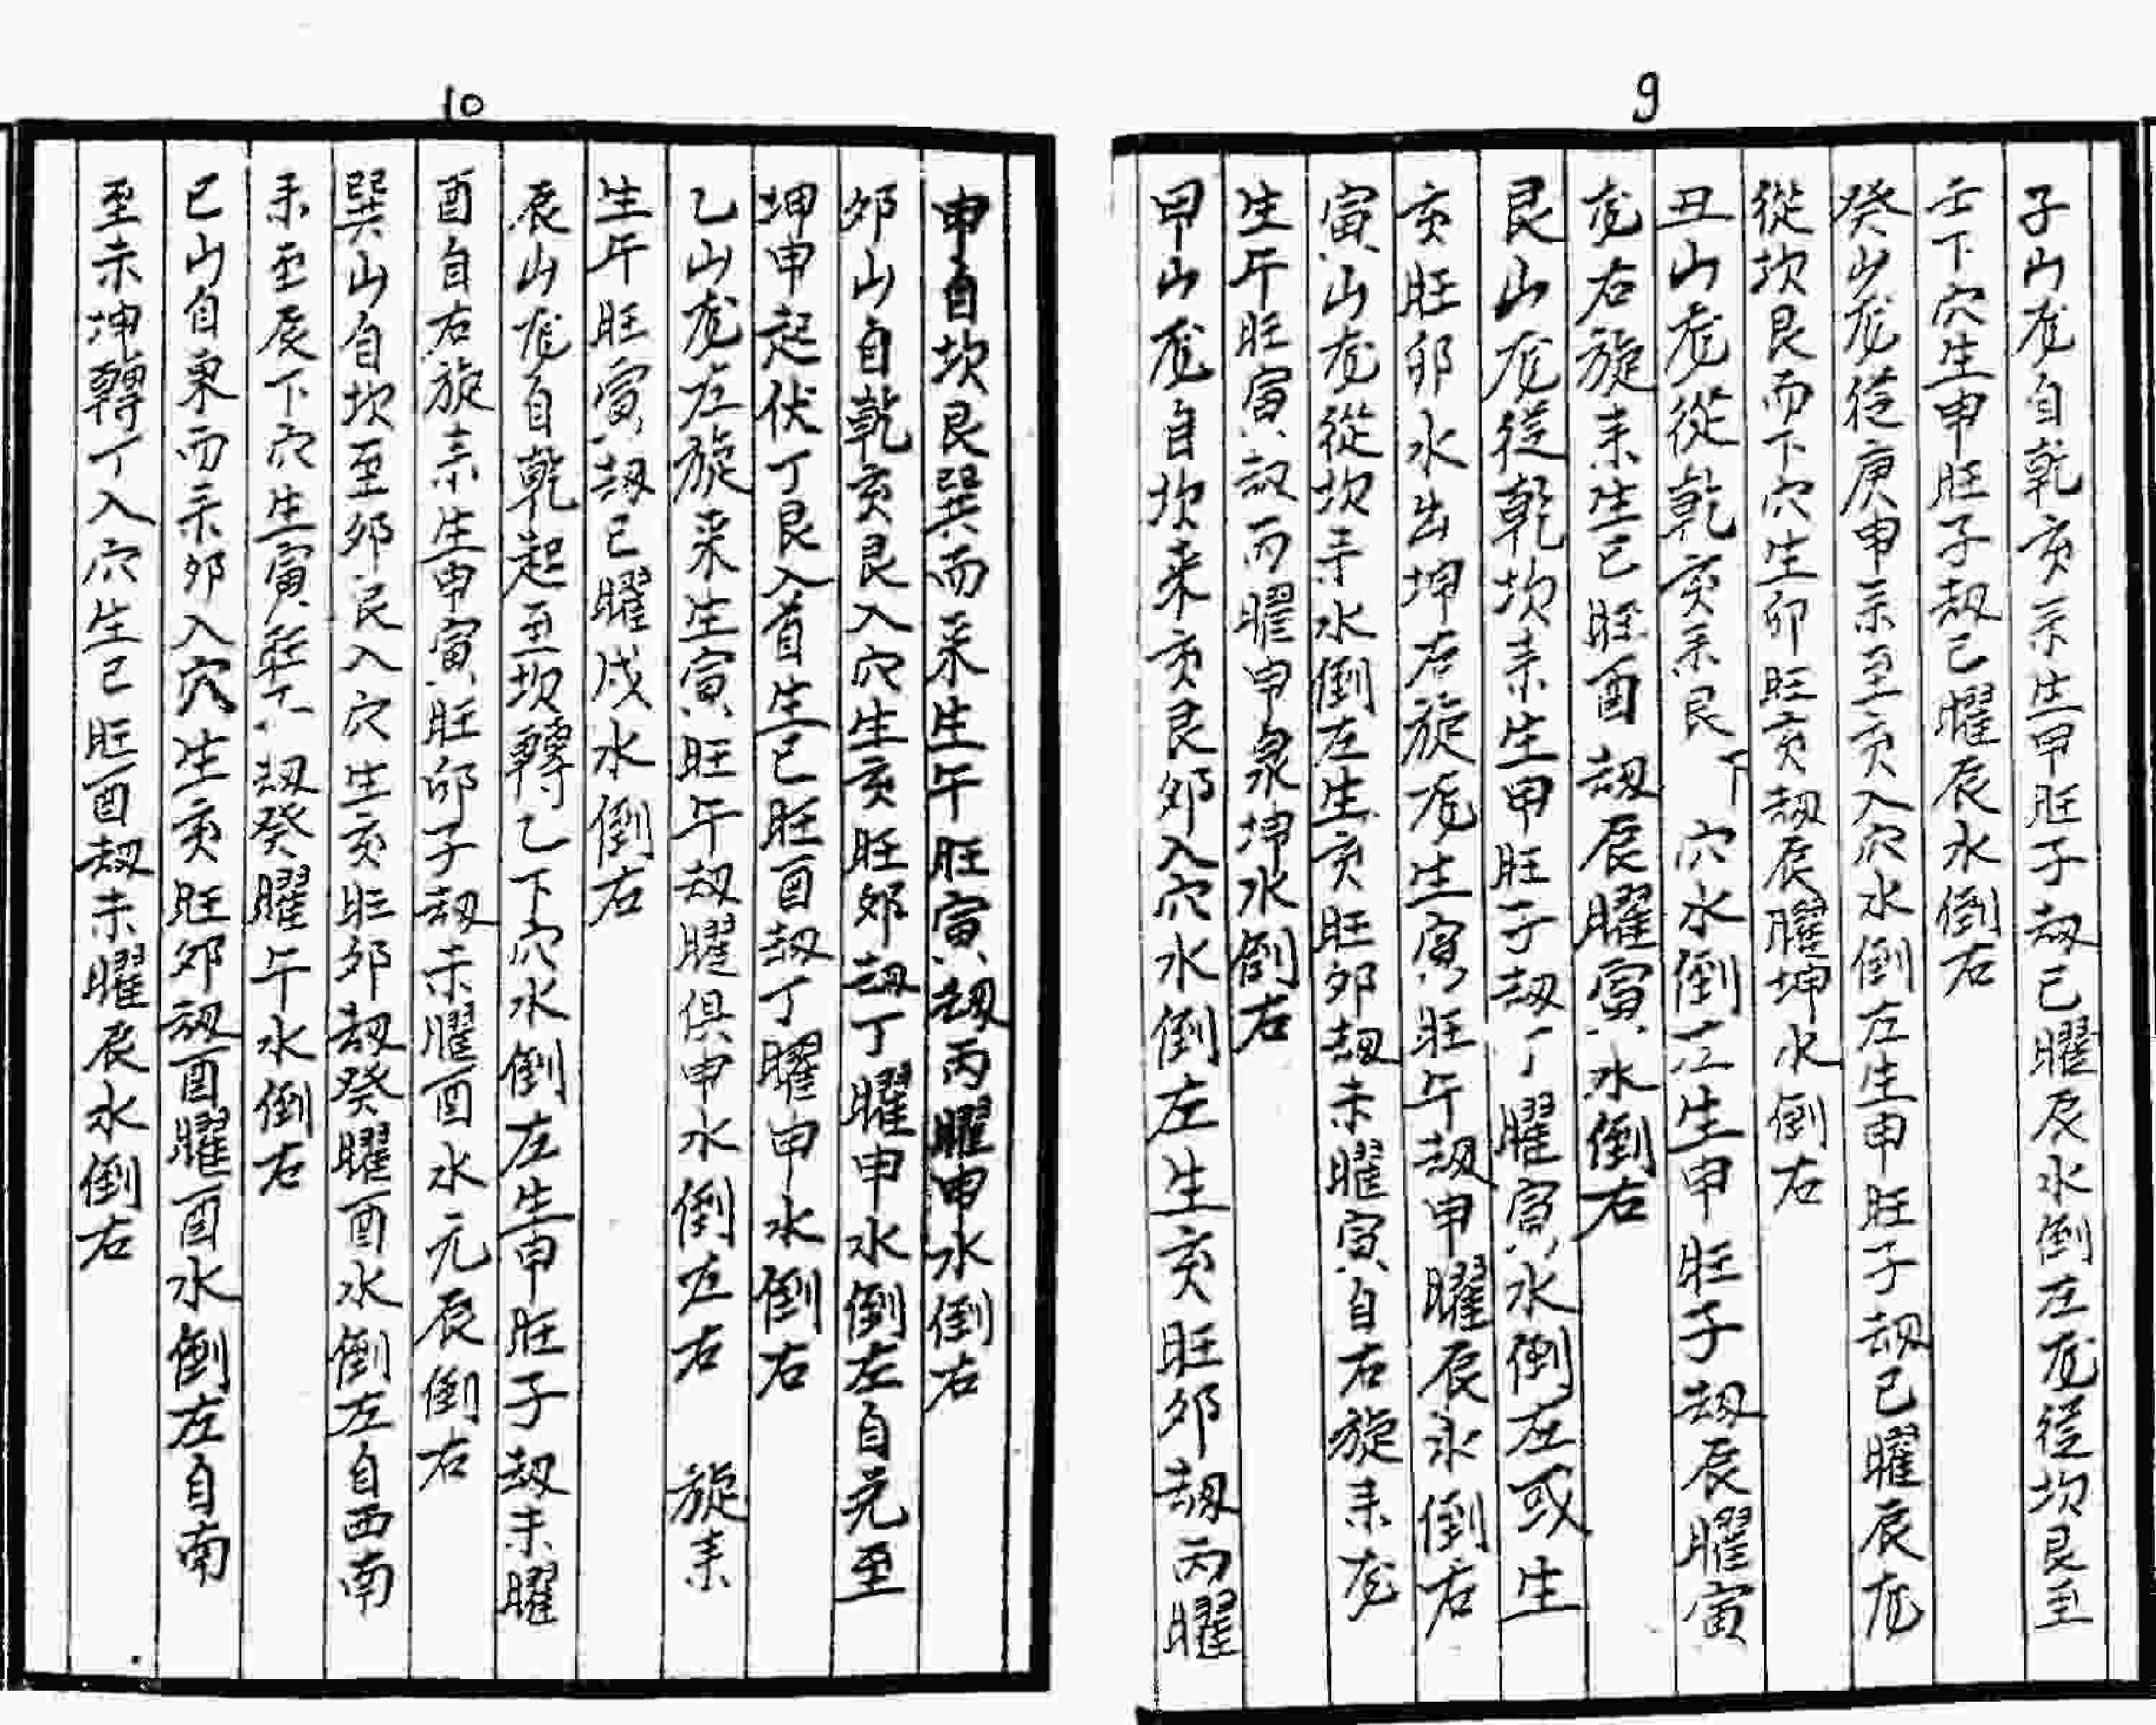 9
子山龙自乾亥來生甲旺子刼巳曜辰水倒左龙從坎艮至
壬下穴生申旺子刼巳曜辰水倒右
癸山龙從庚申來至亥入穴水倒左生申旺子刼巳曜辰龙
從坎艮而下穴生卯旺亥刼辰曜坤水倒右
丑山龙從乾亥來艮下穴水倒左生申旺子刼辰曜寅
龙右旋来生巳旺酉刼辰曜寅水倒右
艮山龙從乾坎来生甲旺子刼丁曜寅水倒左或生
亥旺卯水出坤右旋龙生寅旺午刼申曜辰水倒右
寅山龙從坎来水倒左生亥旺卯刼未曜寅自右旋来龙
生午旺寅刼丙曜申泉坤水倒右
甲山龙自坎来亥艮卯入穴水倒左生亥旺卯刼丙曜
10
申自坎艮巽而来生午旺寅刼丙曜申水倒右
卯山自乾亥艮入穴生亥旺卯刼丁曜申水倒左自兑至
坤申起伏丁艮入首生巳旺酉刼丁曜申水倒右
乙山龙左旋来生寅旺午刼曜俱申水倒左右 旋来
生午旺寅刼巳曜戌水倒右
辰山龙自乾起至坎轉乙下穴水倒左生申旺子刼未曜
酉自右旋来生申寅旺卯子刼未曜酉水元辰倒右
巽山自坎至卯艮入穴生亥旺卯刼癸曜酉水倒左自西南
来至辰下穴生寅旺刼癸曜午水倒右
巳山自東而来卯入穴生亥旺卯刼酉曜酉水倒左自南
至未坤轉丁入穴生巳旺酉刼未曜辰水倒右